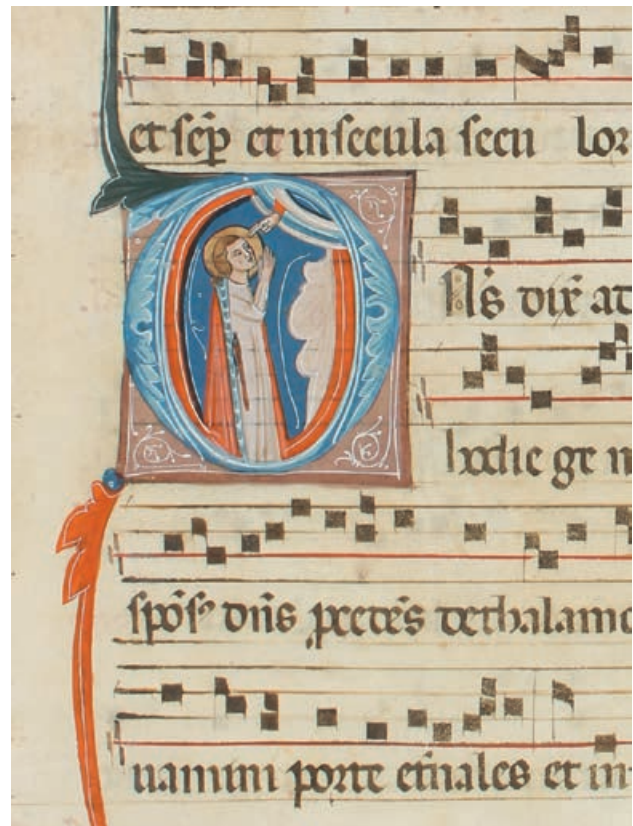 et sēp et in secula secu lor
DNs dix̄ ad
hodie ge n
spōs' dn̄s p̄cedēs de thalamo
uamini porte et̄nales et in